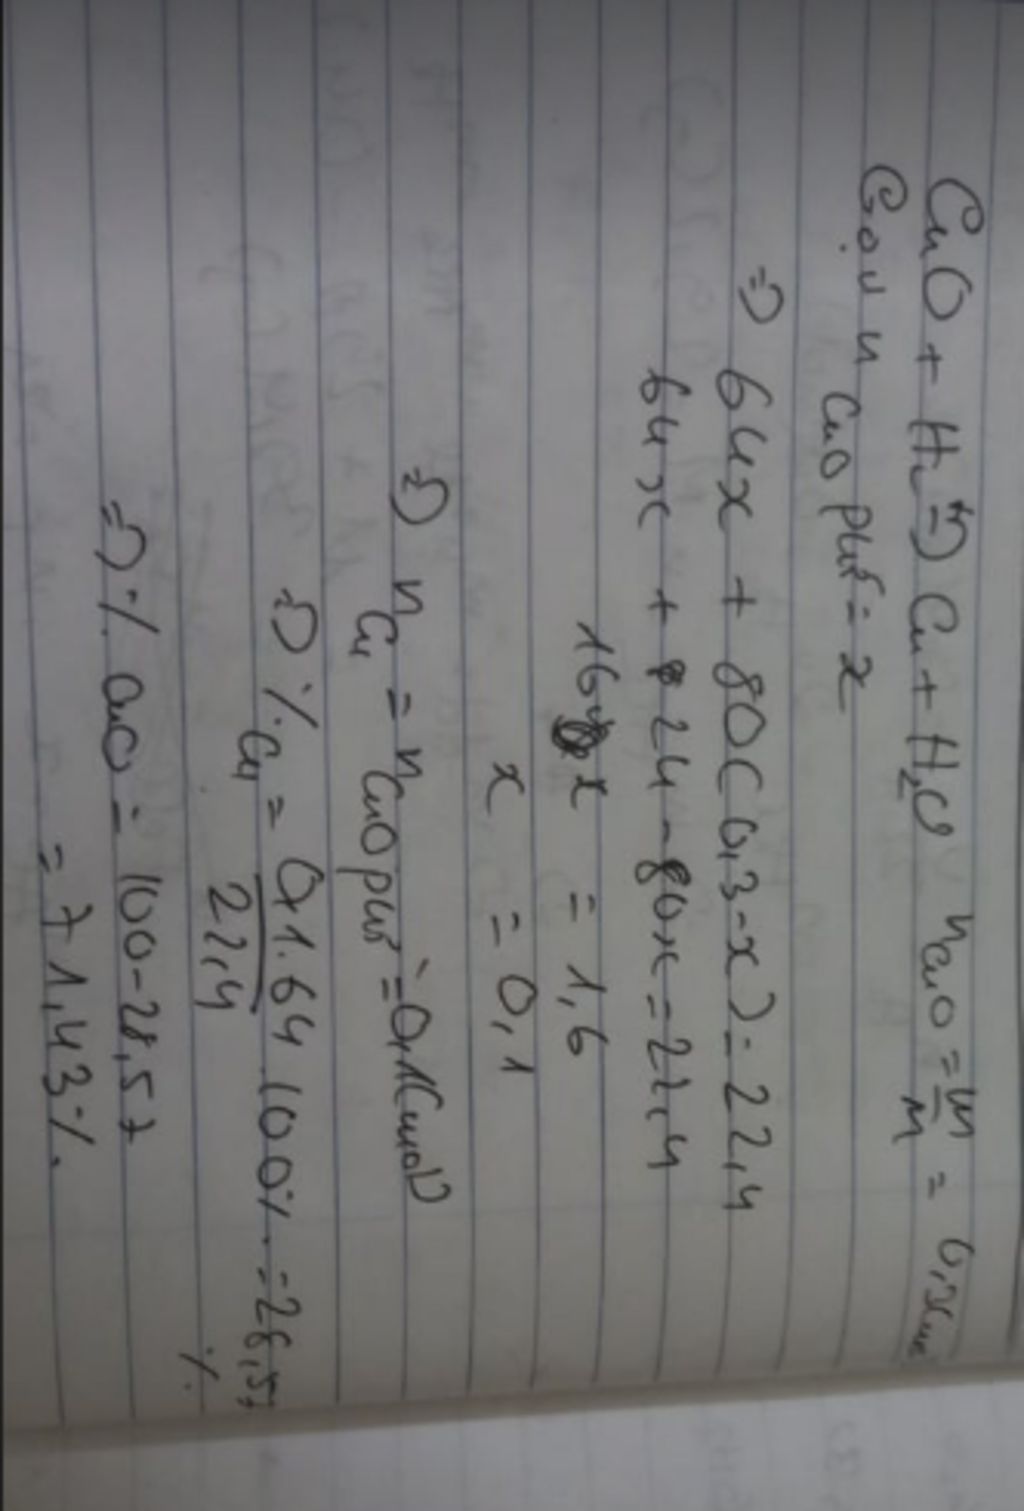 CuO + H₂ t°⇒ Cu + H₂O nCuO = m/M = 0,3mol
Gọi n CuO pứ = x
⇒ 64x + 80(0,3-x) = 22,4
64x + 24 - 80x = 22,4
16x = 1,6
x = 0,1
⇒ nCu = nCuO pứ = 0,1(mol)
⇒ %Cu = 0,1.64/22,4 100% = 28,57%
⇒ % CuO = 100-28,57
= 71,43%.